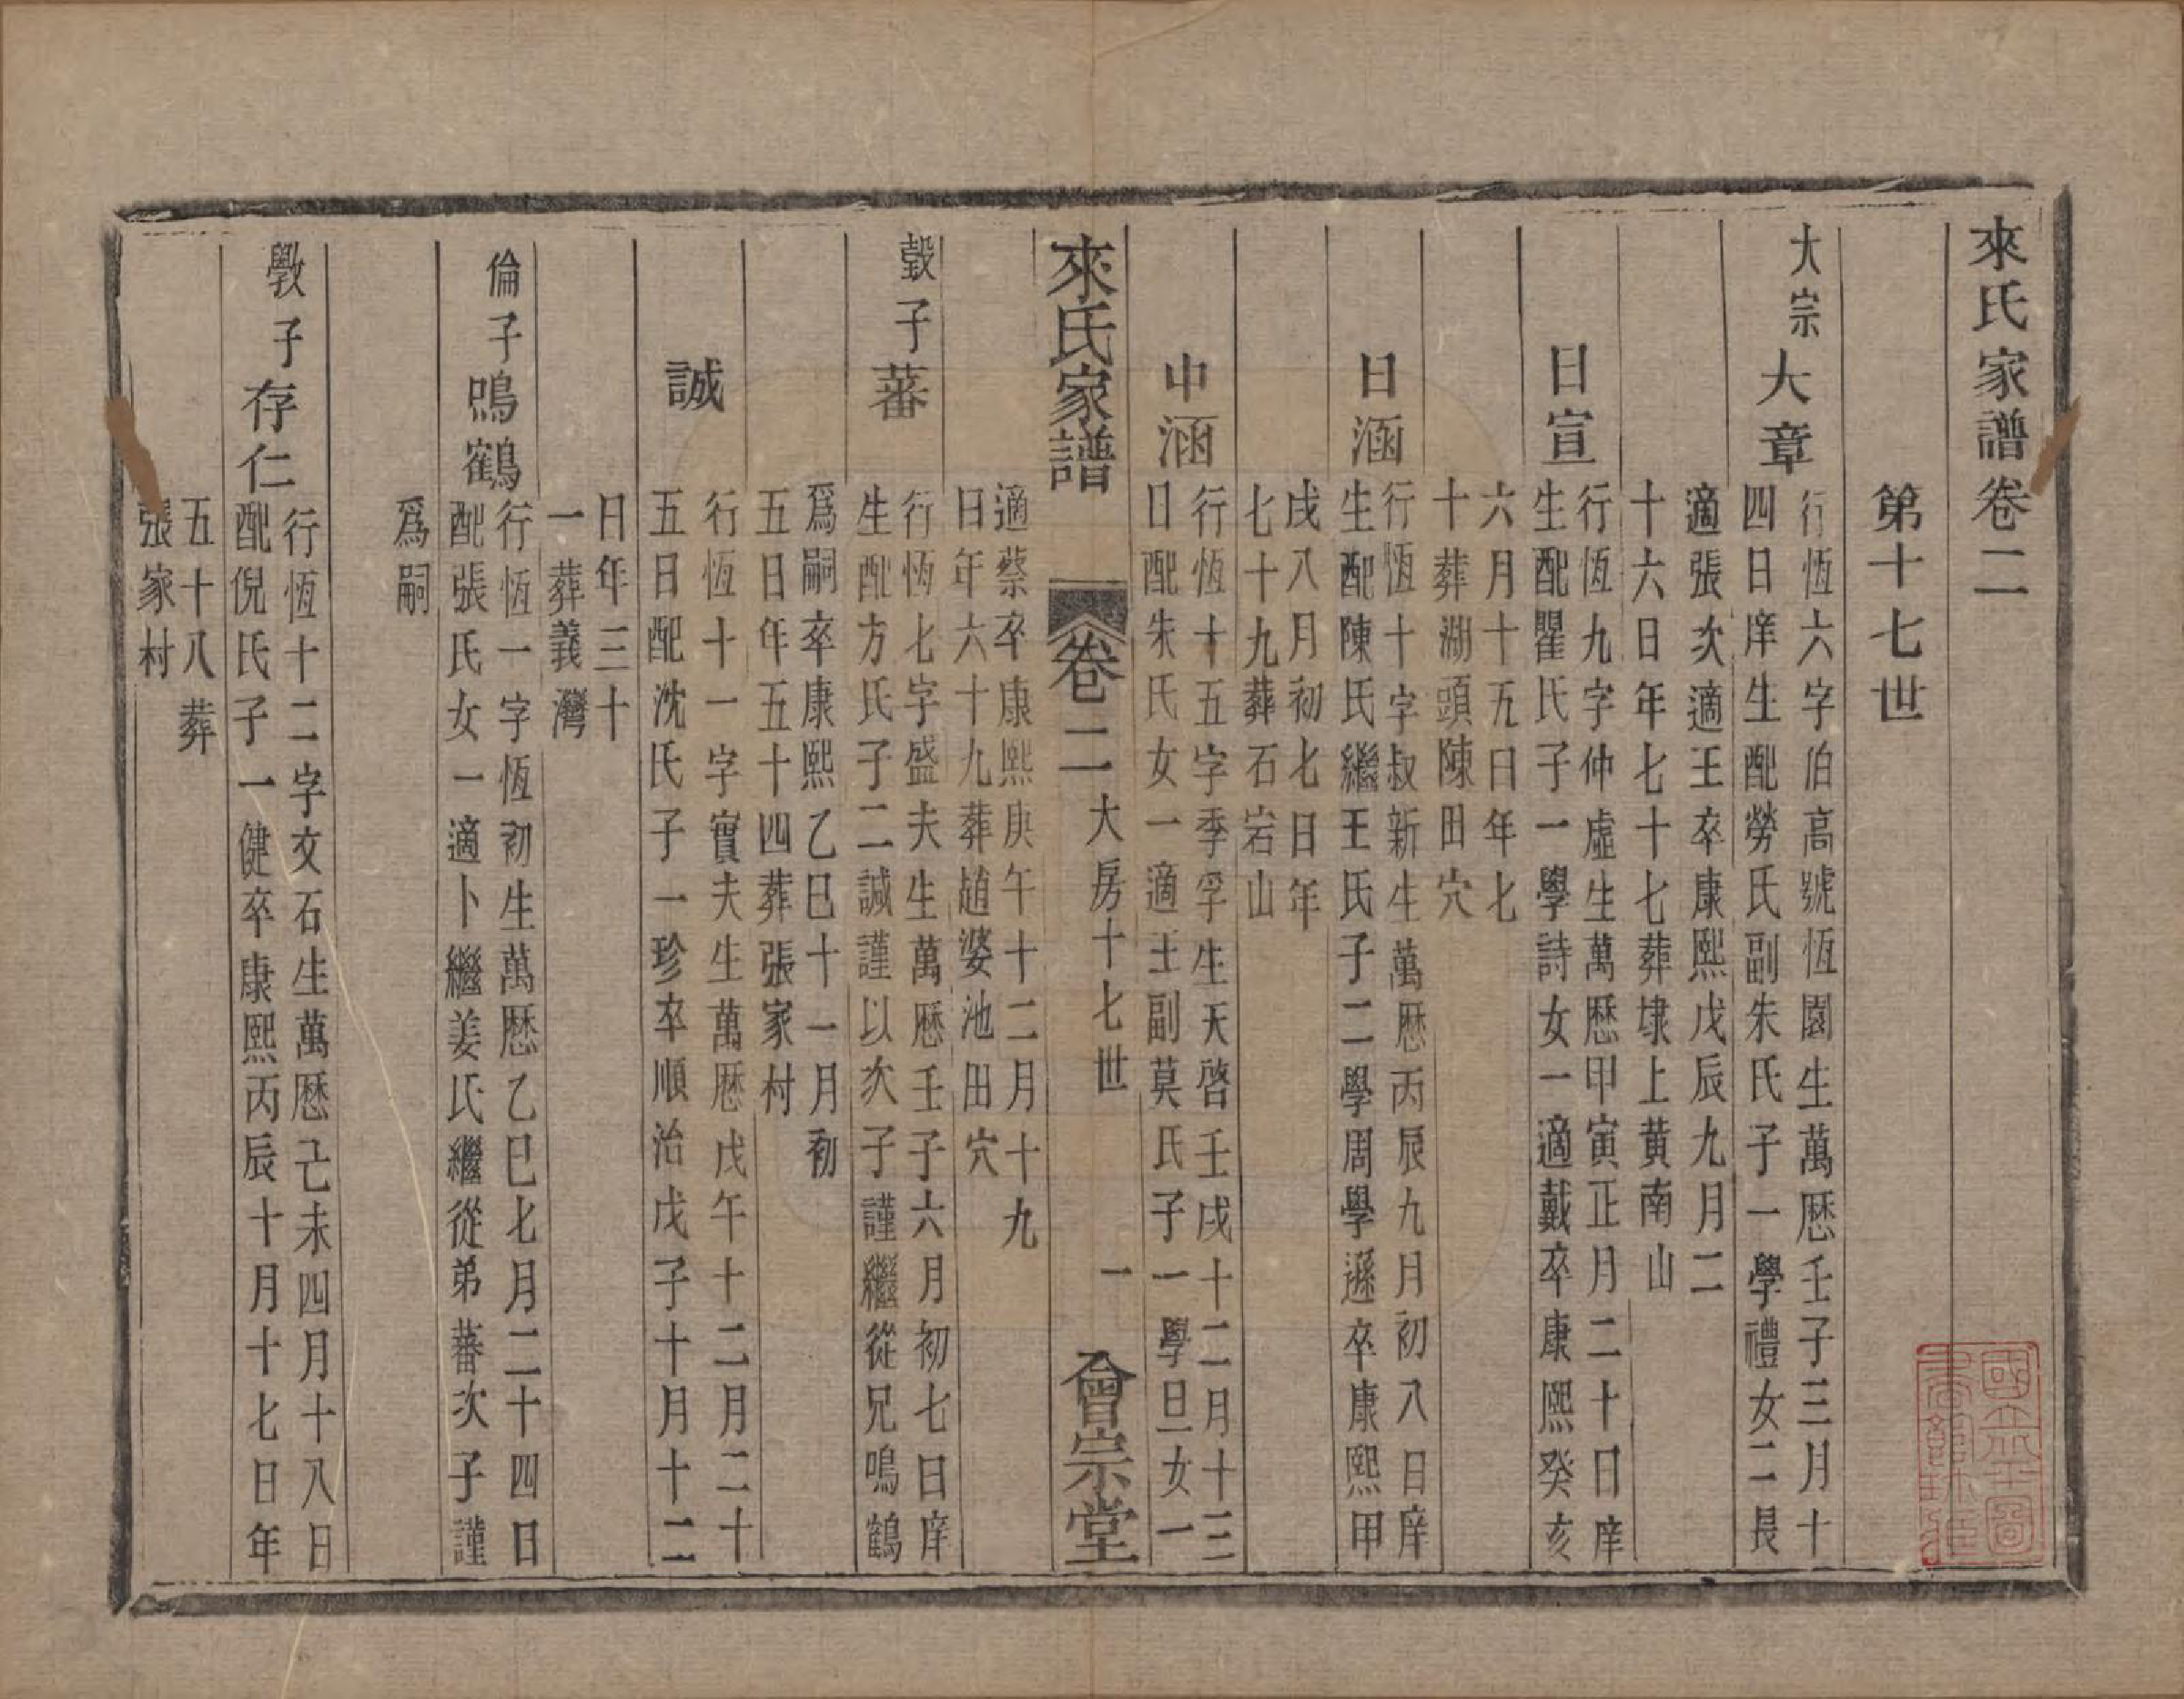 來氏家譜卷二
第十七世
大宗大章
行恆六字伯高號恆園生萬厯壬子三月十
四日庠生配勞氏副朱氏子一學禮女二長
適張次適王卒康熙戊辰九月二
十六日年七十七葬埭上黃南山
日宣
行恆九字仲虛生萬厯甲寅正月二十日庠
生配瞿氏子一學詩女一適戴卒康熙癸亥
六月十五日年七
十葬湖頭陳田穴
日涵
行恆十字叔新生萬厯丙辰九月初八日庠
生配陳氏繼王氏子二學周學遜卒康熙甲
戌八月初七日年
七十九葬石岩山
中涵
行恆十五字季孚生天啓壬戌十二月十三
日配朱氏女一適王副莫氏子一學旦女一
適蔡卒康熙庚午十二月十九
日年六十九葬趙婆池田穴
來氏家譜 卷二 大房十七世 一 會宗堂
瑴子蕃
行恆七字盛夫生萬厯壬子六月初七日庠
生配方氏子二誠謹以次子謹繼從兄鳴鶴
爲嗣卒康熙乙巳十一月初
五日年五十四葬張家村
誠
行恆十一字實夫生萬厯戊午十二月二十
五日配沈氏子一珍卒順治戊子十月十二
日年三十
一葬義灣
倫子鳴鶴
行恆一字恆初生萬厯乙巳七月二十四日
配張氏女一適卜繼姜氏繼從弟蕃次子謹
爲嗣
斆子存仁
行恆十二字文石生萬厯己未四月十八日
配倪氏子一健卒康熙丙辰十月十七日年
五十八葬
張家村